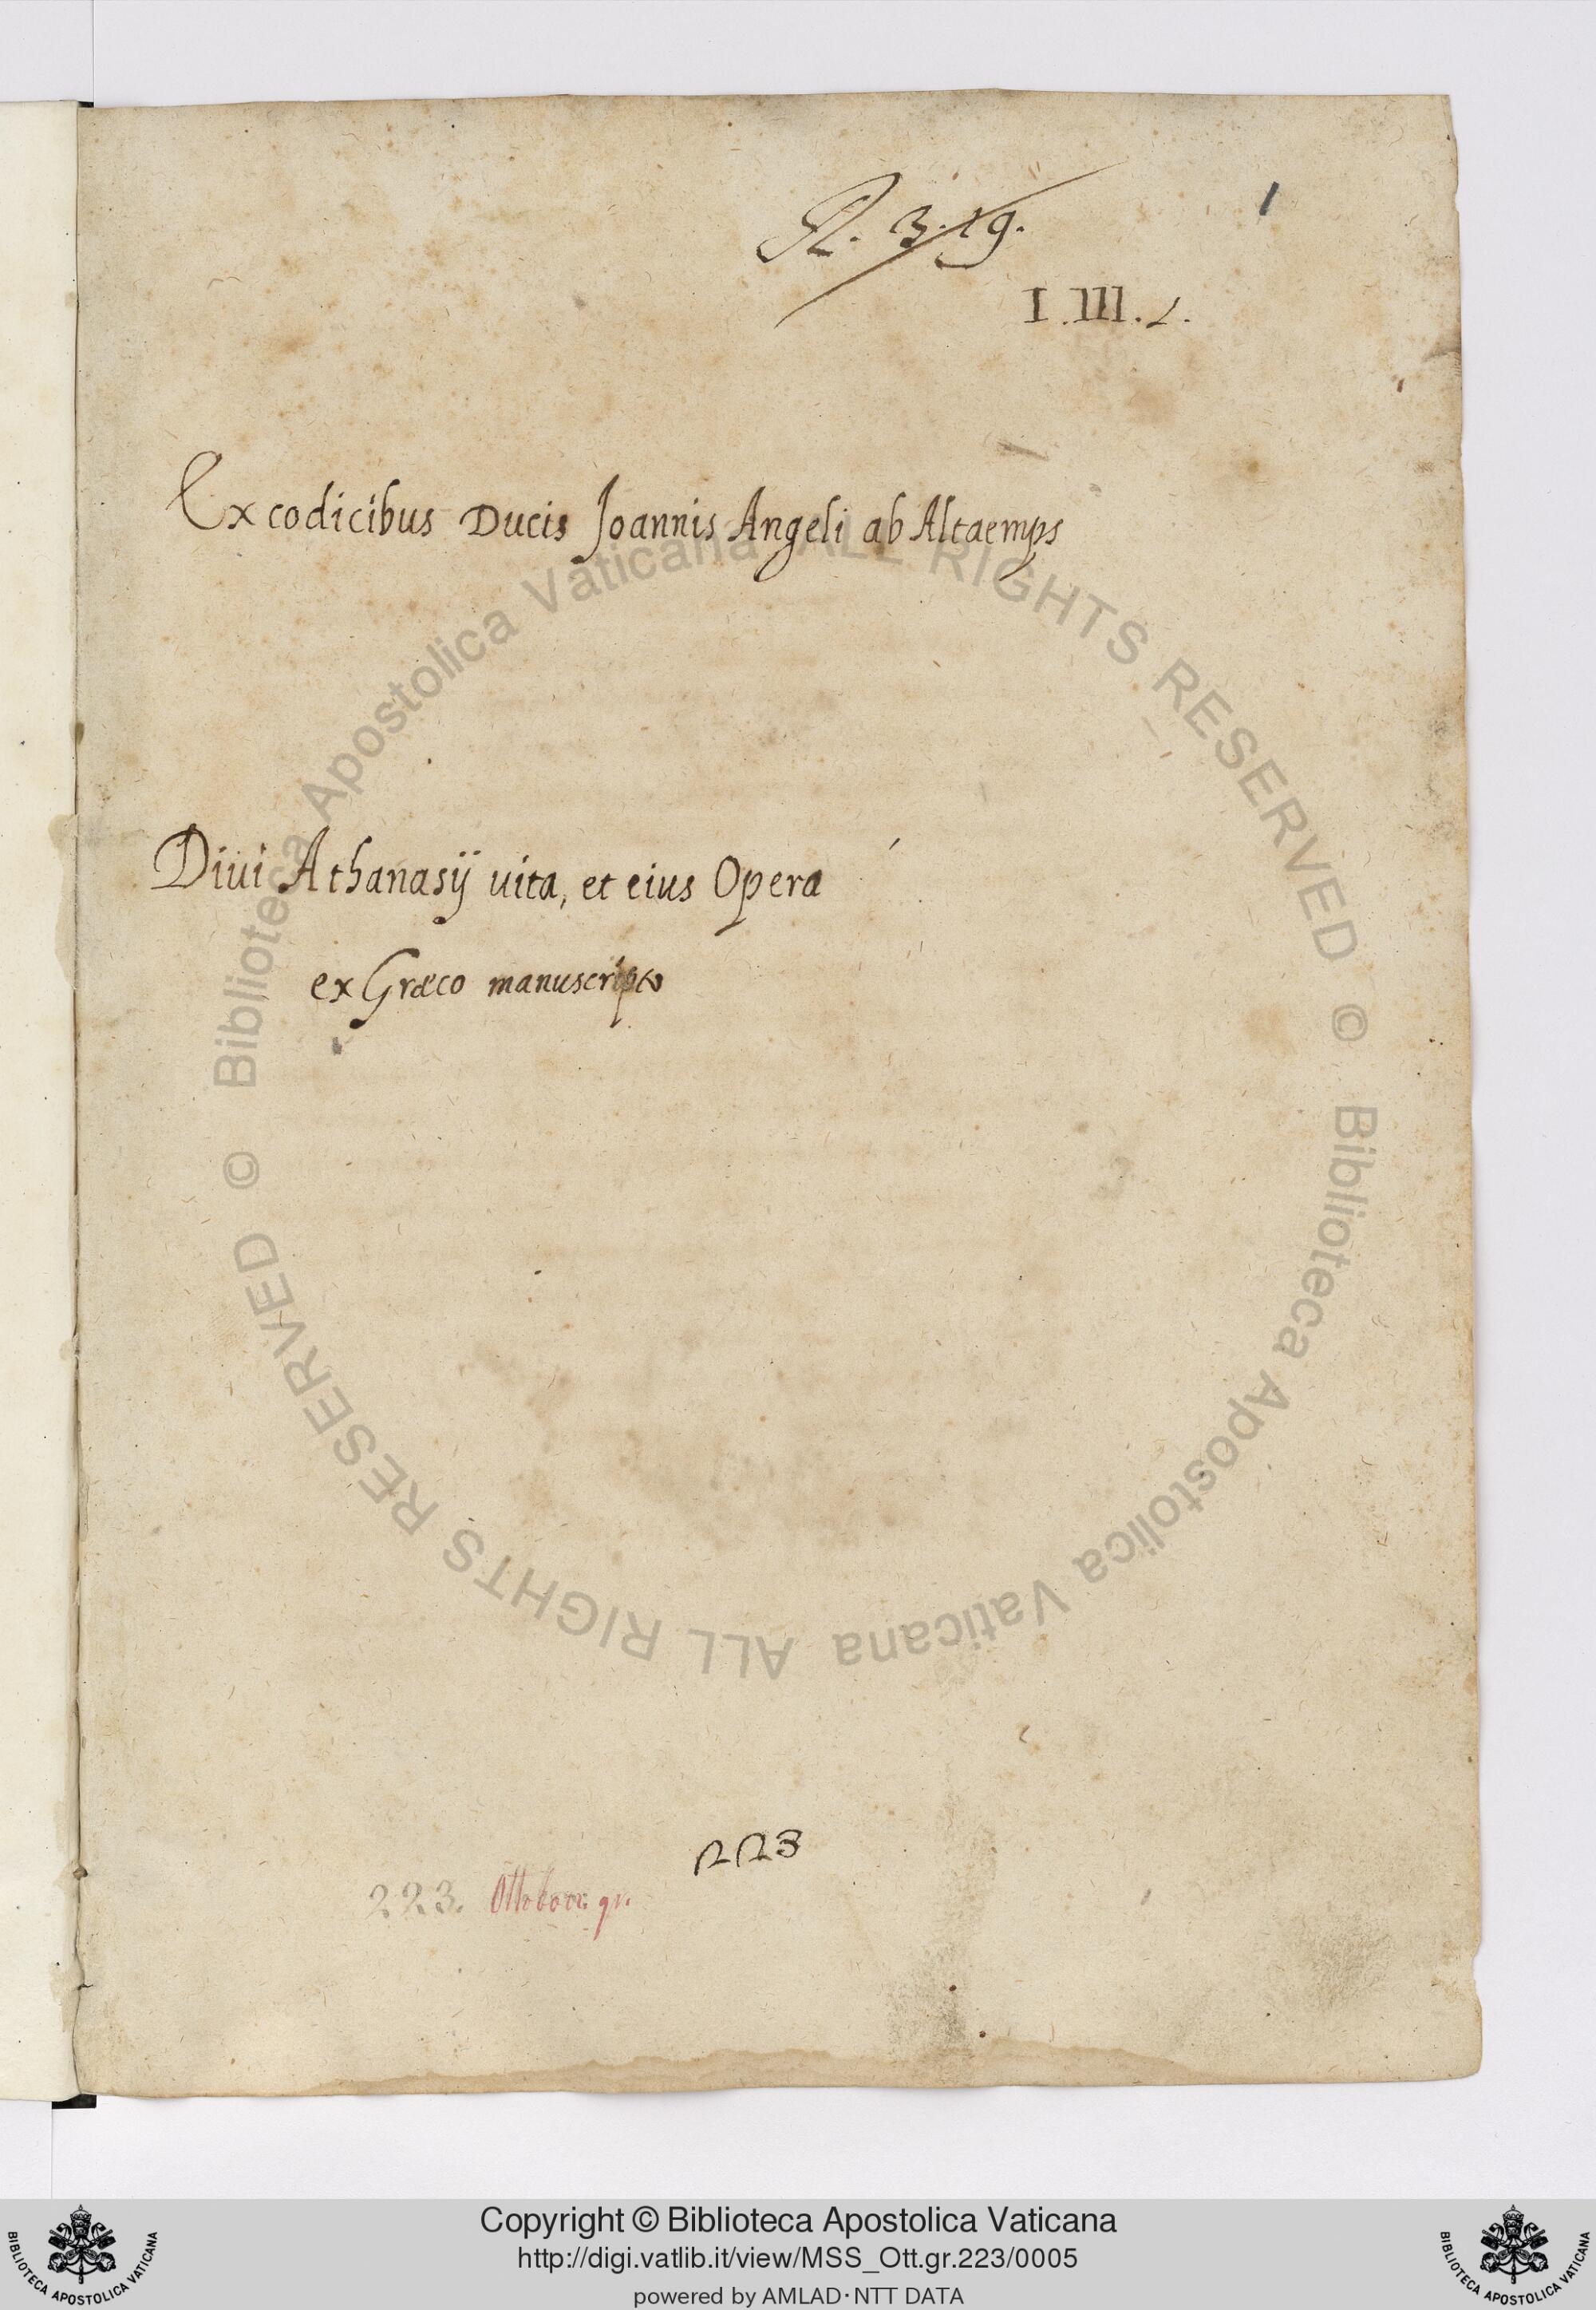 R. 3.19.
1
I.III.2.
Ex codicibus Ducis Joannis Angeli ab Altaemps
Diui Athanasij uita, et eius Opera
ex Græco manuscripto
223
223. Ottobon: gr.
© Biblioteca Apostolica Vaticana ALL RIGHTS RESERVED © Biblioteca Apostolica Vaticana ALL RIGHTS RESERVED
Copyright © Biblioteca Apostolica Vaticana
http://digi.vatlib.it/view/MSS_Ott.gr.223/0005
powered by AMLAD·NTT DATA
BIBLIOTECA APOSTOLICA VATICANA
BIBLIOTECA APOSTOLICA VATICANA